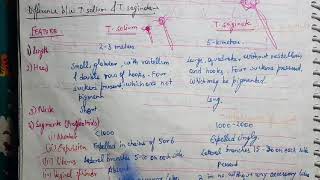 Difference b/w T. solium & T. saginata
FEATURE T. solium T. saginata
1) length 2-3 meters 5-10 meters
2) Head Small, globular, with rostellum Large, quadrate, without rostellum
& double row of hooks. Four and hooks. Four suckers present,
suckers present, which are not which may be pigmented.
pigment
3) Neck Short Long.
4) Segments (Proglottids)
(i) Number <1000 1000-2000
(ii) Expulsion Expelled in chains of 5 or 6 Expelled singly.
(iii) Uterus lateral branches 5-10 on each side Lateral branches 15-30 on each side
(iv) Vaginal sphincter Absent Present